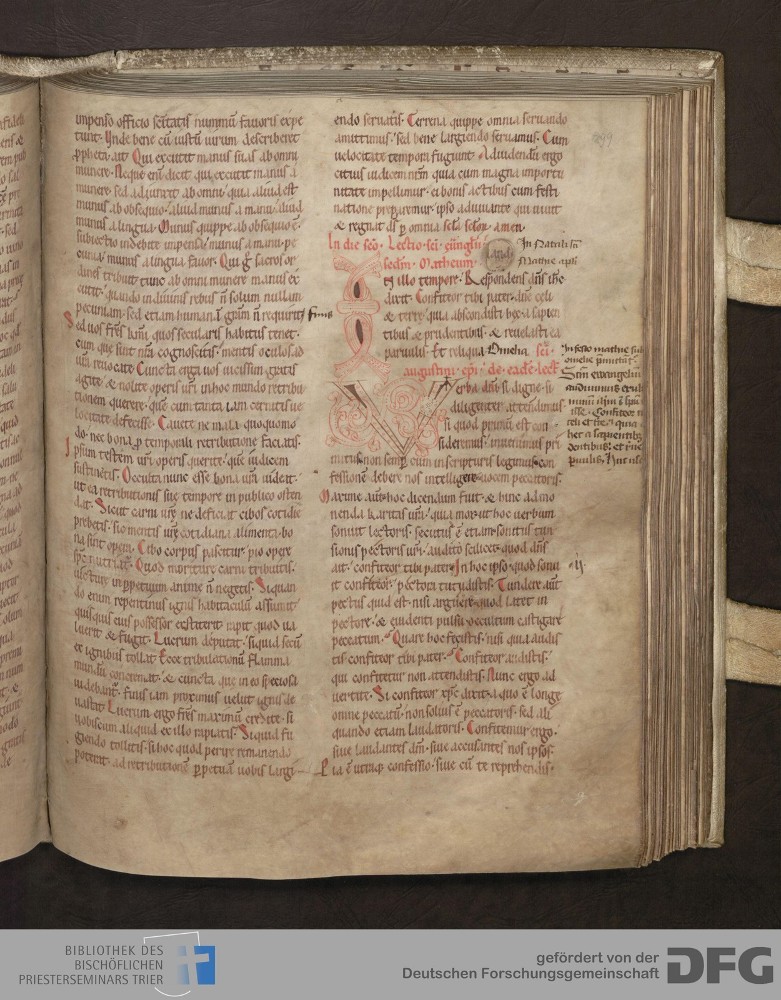 impenso officio scītatis nummū favoris expe
tunt. Unde bene cū iustū uirum describeret
ꝓpheta ait. Qui excutit manus suas ab omni
munere. Neque enī dicit qui excutit manus a
munere. sed adiunxit ab omni. quia aliud est
munus ab obsequio. aliud munus a manu. aliud
munus a lingua. Munus quippe ab obsequio ē.
subiectio indebite impensa. munus a manu. pe
cunia. munus a lingua fauor. Qui ḡ sacros or
dines tribuit tunc ab omni munere manus ex
cutit. quando in diuinis rebus ñ solum nullam
pecuniam. sed etiam humanā grām ñ requirit
Sed uos frēs kmi. quos secularis habitus tenet.
cum que sint nrā cognoscitis. mentis oculos ad
urā reuocate. Cuncta erga uos uicissim gratis
agite. & nolite operis uri in hoc mundo retribu
tionem querere. que cum tanta iam cernitis ue
locitate defecisse. Cauete ne mala quoquomo
do. nec bona ꝓ temporali retributione faciatis.
Ipsum testem uri operis querite. que iudicem
sustinetis. Occulta nunc esse bona urā uideit.
ut ea retributionis sue tempore in publico osten
dat. Sicut carni urę ne deficiat cibos cotidie
prebetis. sic mentis urę cotidiana alimenta. bo
na sint opera. Cibo corpus pascitur. pio opere
spc̄ nutriat. Quod moriture carni tribuitis.
uicture in ꝑpetuum anime ñ negetis. Si quan
do enim repentinus ignis habitaculū assumit
quisquis eius possessor extiterit rapit quod ua
luerit & fugit. Lucrum deputat. si quid secū
ex ignibus tollat. Ecce tribulationū flamma
mundū concremat. & cuncta que in eo speciosa
uidebant. finis iam proximus uelut ignis de
uastat. Lucrum ergo frēs maximū credite. si
uobiscum aliquid ex illo rapiatis. Si quid fu
giendo tollitis. si hoc quod perire remanendo
poterat. ad retributionē ꝑpetuā uobis largi
finis
endo seruatis. Terrena quippe omnia seruando
amittimus. sed bene largiendo seruamus. Cum
uelocitate tempora fugiunt. Ad iudendū ergo
citius iudicem nrm. quia cum magna importu
nitate impellimur. ex bonis actibus cum festi
natione preparemur. ipso adiuuante qui uiuit
& regnat dī ꝑ omnia sclā sclorᷣ. amen.
In die sco. Lectio. sci. euuāgłii
sedm. Matheum.
In illo tempore. Respondens dñs ihc
dixit. Confiteor tibi pater. dñe celi
& terre. quia abscondisti hec a sapien
tibus & prudentibus. & reuelasti ea
paruulis. Et reliqua. Omelia. sci.
augustini. epi. de eade. lect̄
Verba dni si digne. si
diligenter attendimus
si quod primū est con
sideremus. inuenimus pri
mitus. non semp cum in scripturis legimus con
fessionē debere nos intelligere uocem peccatoris.
Maxime aut̄ hoc dicendum fuit. & hinc admo
nenda karitas urā. quia mox ut hoc uerbum
sonuit lectoris. secutus ē etiam sonitus tun
sionis pectoris uri. audito scilicet quod dñs
ait. confiteor tibi pater. In hoc ipso quod sonu
it confiteor. pectora tutudistis. Tundere aut̄
pectus quid est nisi arguere quod latet in
pectore. & euidenti pulsu occultum castigare
peccatum. Quare hoc fecistis. nisi quia audis
tis confiteor tibi pater. Confiteor audistis.
qui confitetur non attendistis. Nunc ergo ad
uertite. Si confiteor xpc dixit. a quo ē longe
omne peccatū. non solius ē peccatoris. sed ali
quando etiam laudatoris. Confitemur ergo.
siue laudantes dm. siue accusantes nos ipsos.
Pia ē utraqᷣ confessio. siue cū te reprehendis.
299
In Natali sc̄i
Mathie apłi
In festo mathie
omelie
Scm ewangeliū
audiuimus
ille. Confiteor t
celi et tre. quia
hec a sapientibꝫ
dentibus. et r̄ue
puulis.
ij
BIBLIOTHEK DES
BISCHÖFLICHEN
PRIESTERSEMINARS TRIER
gefördert von der
Deutschen Forschungsgemeinschaft
DFG